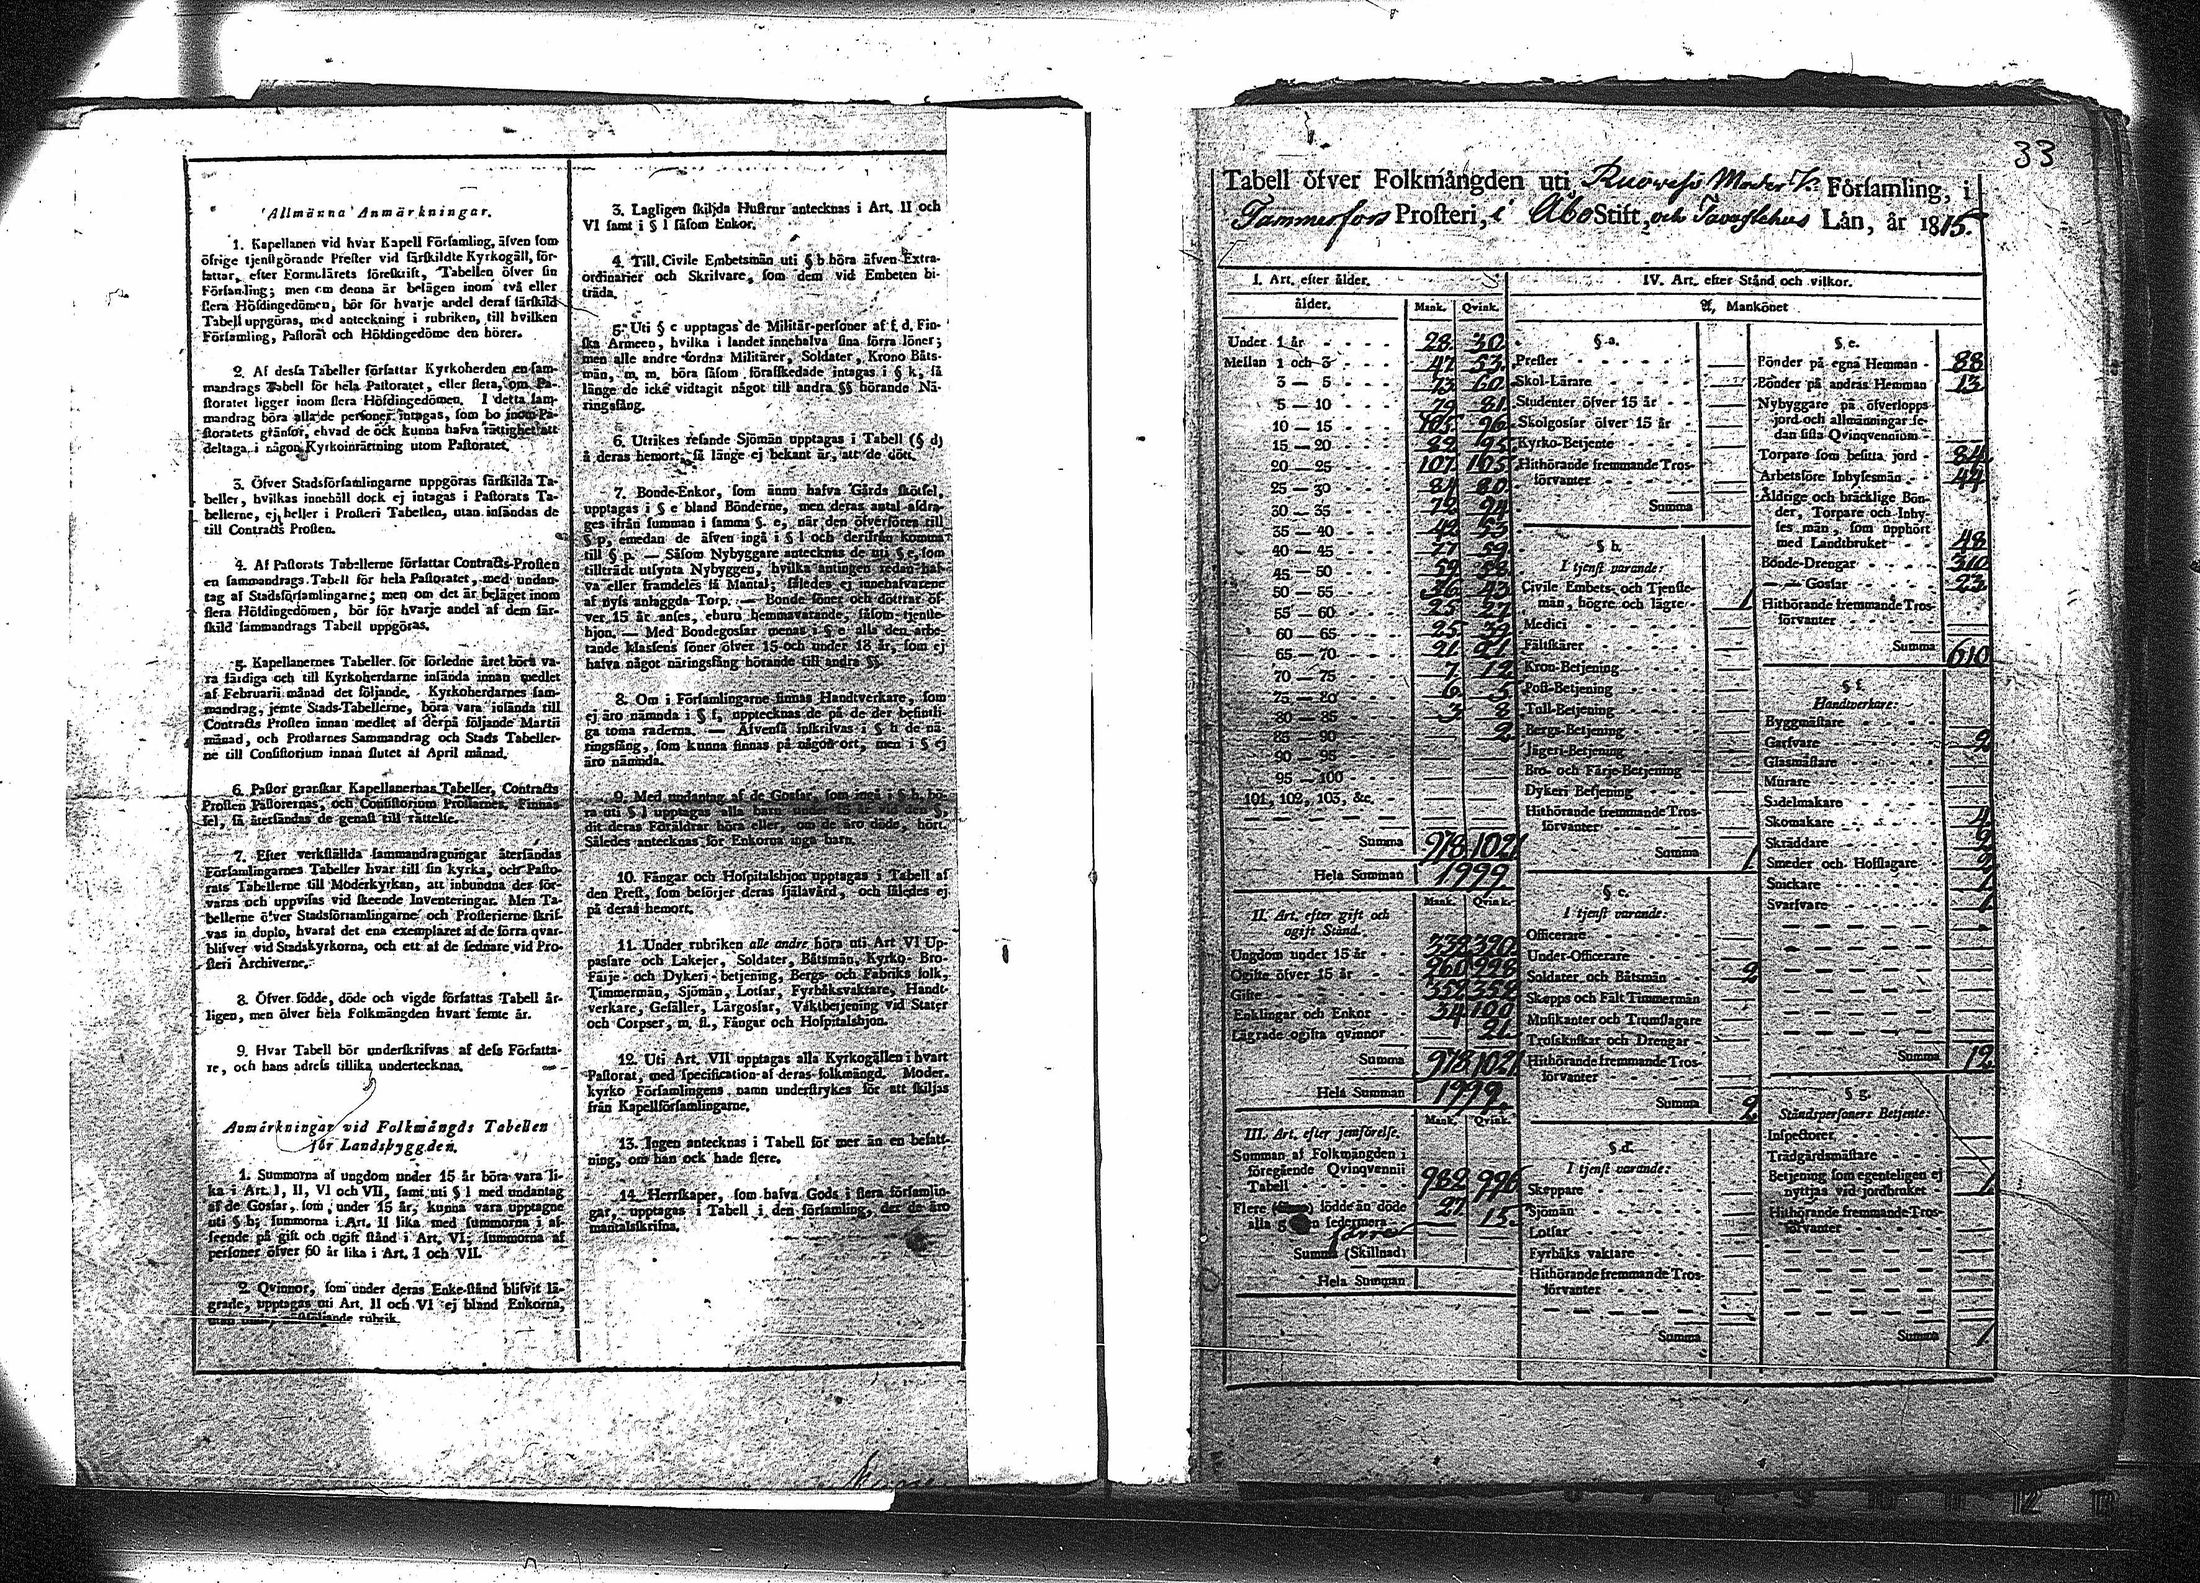 Allmänna Anmärkningar.
1. Kapellanen vid hvar Kapell Församling, äfven som
öfrige tjenstgörande Prester vid särskildte Kyrkogäll, för-
fattar, efter Formulärets föreskrift, Tabellen öfver sin
Församling; men om denna är belägen inom två eller
flera Höfdingedömen, bör för hvarje andel deraf särskild
Tabell uppgöras, med anteckning i rubriken, till hvilken
Församling, Pastorat och Höfdingedöme den hörer.
2. Af dessa Tabeller författar Kyrkoherden en sam-
mandrags Tabell för hela Pastoratet, eller flera, om Pa-
storatet ligger inom flera Höfdingedömen. I detta sam-
mandrag böra alla de personer intagas, som bo inom Pa-
storatets gränsor, ehvad de ock kunna hafva rättighet att
deltaga i någon Kyrkoinrättning utom Pastoratet.
3. Öfver Stadsförsamlingarne uppgöras särskilda Ta-
beller, hvilkas innehåll dock ej intagas i Pastorats Ta-
bellerne, ej heller i Prosteri Tabellen, utan insändas de
till Contracts Prosten.
4. Af Pastorats Tabellerne författar Contracts-Prosten
en sammandrags Tabell för hela Pastoratet, med undan-
tag af Stadsförsamlingarne; men om det är beläget inom
flera Höfdingedömen, bör för hvarje andel af dem sär-
skild sammandrags Tabell uppgöras.
5. Kapellanernes Tabeller för förledne året böra va-
ra färdiga och till Kyrkoherdarne insända innan medlet
af Februarii månad det följande. Kyrkoherdarnes sam-
mandrag, jemte Stads-Tabellerne, böra vara insända till
Contracts Prosten innan medlet af derpå följande Martii
månad, och Prostarnes Sammandrag och Stads Tabeller-
ne till Consistorium innan slutet af April månad.
6. Pastor granskar Kapellanernas Tabeller, Contracts
Prosten Pastorernas, och Consistorium Prostarnes. Finnas
fel, så återsändas de genast till rättelse.
7. Efter verkställda sammandragningar återsändas
Församlingarnes Tabeller hvar till sin kyrka, och Pasto-
rats Tabellerne till Moderkyrkan, att inbundna der för-
varas och uppvisas vid skeende Inventeringar. Men Ta-
bellerne öfver Stadsförsamlingarne och Prosterierne skrif-
vas in duplo, hvaraf det ena exemplaret af de förra qvar-
blifver vid Stadskyrkorna, och ett af de sednare vid Pro-
steri Archiverne.
8. Öfver födde, döde och vigde författas Tabell år-
ligen, men öfver hela Folkmängden hvart femte år.
9. Hvar Tabell bör underskrifvas af dess Författa-
re, och hans adress tillika undertecknas.
Anmärkningar vid Folkmängds Tabellen
för Landsbyggden.
1. Summorna af ungdom under 15 år böra vara li-
ka i Art. I, II, VI och VII, samt uti § l med undantag
af de Gossar, som, under 15 år, kunna vara upptagne
uti § b; summorna i Art. II lika med summorna i af-
seende på gift och ogift stånd i Art. VI; summorna af
personer öfver 60 år lika i Art. I och VII.
2. Qvinnor, som under deras Enke-stånd blifvit lä-
grade, upptagas uti Art. II och VI ej bland Enkorna,
rubrik.
3. Lagligen skiljda Hustrur antecknas i Art. II och
VI samt i § l såsom Enkor.
4. Till Civile Embetsmän uti § b höra äfven Extra-
ordinarier och Skrifvare, som dem vid Embeten bi-
träda.
5. Uti § c upptagas de Militär-personer af f. d. Fin-
ska Armeen, hvilka i landet innehafva sina förra löner;
men alle andre fordna Militärer, Soldater, Krono Båts-
män, m. m. böra såsom förafskedade intagas i § k, så
länge de icke vidtagit något till andra §§ hörande Nä-
ringsfång.
6. Utrikes resande Sjömän upptagas i Tabell (§ d)
å deras hemort, så länge ej bekant är, att de dött.
7. Bonde-Enkor, som ännu hafva Gårds skötsel,
upptagas i § e bland Bönderne, men deras antal afdra-
ges ifrån summan i samma § e, när den öfverföres till
§ p, emedan de äfven ingå i § l och derifrån komma
till § p. — Såsom Nybyggare antecknas de uti § e, som
tillträdt utsynta Nybyggen, hvilka antingen redan haf-
va eller framdeles få Mantal; således ej innehafvarene
af nyss anlaggda Torp. — Bonde söner och döttrar öf-
ver 15 år anses, ehuru hemmavarande, såsom tjenste-
hjon. — Med Bondegossar menas i § e alla den arbe-
tande klassens söner öfver 15 och under 18 år, som ej
hafva något näringsfång hörande till andra §§.
8. Om i Församlingarne finnas Handtverkare, som
ej äro nämnda i § f, upptecknas de på de der befintli-
ga toma raderna. — Äfvenså inskrifvas i § h de nä-
ringsfång, som kunna finnas på någon ort, men i § ej
äro nämnda.
9. Med undantag af de Gossar, som ingå i § b, bö-
ra uti § l upptagas alla barn under 15 år vid den §,
dit deras Föräldrar höra eller, om de äro döde, hört.
Således antecknas för Enkorna inga barn.
10. Fångar och Hospitalshjon upptagas i Tabell af
den Prest, som besörjer deras själavård, och således ej
på deras hemort.
11. Under rubriken alle andre höra uti Art VI Up-
passare och Lakejer, Soldater, Båtsmän, Kyrko- Bro-
Färje- och Dykeri-betjening, Bergs- och Fabriks folk,
Timmermän, Sjömän, Lotsar, Fyrbåksvaktare, Handt-
verkare, Gesäller, Lärgossar, Vaktbetjening vid Stater
och Corpser, m. fl., Fångar och Hospitalshjon.
12. Uti Art. VII upptagas alla Kyrkogällen i hvart
Pastorat, med specification af deras folkmängd. Moder-
kyrko Församlingens namn understrykes för att skiljas
från Kapellförsamlingarne.
13. Ingen antecknas i Tabell för mer än en befatt-
ning, om han ock hade flere.
14. Herrskaper, som hafva Gods i flera församlin-
gar, upptagas i Tabell i den församling, der de äro
mantalsskrifna.
33
Tabell öfver Folkmängden uti Ruovesi Moder K. Församling, i
Tammerfors Prosteri, i Åbo Stift, och Tavastehus Län, år 1815.
I. Art. efter ålder.
ålder. Mank. Qvink.
Under 1 år 28 30
Mellan 1 och 3 47 53
3 — 5 73 60
5 — 10 79 81
10 — 15 105 96
15 — 20 82 95
20 — 25 107 105
25 — 30 81 80
30 — 35 72 94
35 — 40 42 53
40 — 45 77 59
45 — 50 59 58
50 — 55 36 43
55 — 60 25 27
60 — 65 25 39
65 — 70 21 21
70 — 75 7 12
75 — 80 6 5
80 — 85 3 8
85 — 90 2
90 — 95
95 — 100
101, 102, 103, &c.
Summa 978 1021
Hela Summan 1999
Mank. Qvink.
II. Art. efter gift och
ogift Stånd.
Ungdom under 15 år 332 320
Ogifte öfver 15 år 260 228
Gifte 352 352
Enklingar och Enkor 34 100
Lägrade ogifta qvinnor 21
Summa 978 1021
Hela Summan 1999
Mank. Qvink.
III. Art. efter jemförelse.
Summan af Folkmängden i
föregående Qvinqvennii
Tabell 982 996
Flere födde än döde 27 15
alla sedermera
Summa (Skillnad)
Hela Summan
IV. Art. efter Stånd och vilkor.
A, Mankönet
§ a.
Prester
Skol-Lärare
Studenter öfver 15 år
Skolgossar öfver 15 år
Kyrko-Betjente
Hithörande fremmande Tros-
förvanter
Summa
§ b.
I tjenst varande:
Civile Embets- och Tjenste-
män, högre och lägre 1
Medici
Fältskärer
Kron-Betjening
Post-Betjening
Tull-Betjening
Bergs-Betjening
Jägeri-Betjening
Bro- och Färje-Betjening
Dykeri Betjening
Hithörande fremmande Tros-
förvanter
Summa 1
§ c.
I tjenst varande:
Officerare
Under-Officerare
Soldater och Båtsmän 2
Skepps och Fält Timmermän
Musikanter och Trumslagare
Trosskuskar och Drengar
Hithörande fremmande Tros-
förvanter
Summa 2
§ d.
I tjenst varande:
Skeppare
Sjömän
Lotsar
Fyrbåks vaktare
Hithörande fremmande Tros-
förvanter
Summa
§ e.
Bönder på egna Hemman 88
Bönder på andras Hemman 13
Nybyggare på öfverlopps
jord och allmänningar se-
dan sista Qvinqvennium
Torpare som besitta jord 84
Arbetsföre Inhysesmän 44
Åldrige och bräcklige Bön-
der, Torpare och Inhy-
ses män, som upphört
med Landtbruket 48
Bönde-Drengar 310
— — Gossar 23
Hithörande fremmande Tros-
förvanter
Summa 610
§ f.
Handtverkare:
Byggmästare
Garfvare 2
Glasmästare
Murare
Sadelmakare
Skomakare 4
Skräddare 2
Smeder och Hofslagare 2
Snickare 1
Svarfvare 1
Summa 12
§ g.
Ståndspersoners Betjente:
Inspectorer
Trädgårdsmästare
Betjening som egenteligen ej
nyttjas vid jordbruket 1
Hithörande fremmande Tros-
förvanter
Summa 1
12